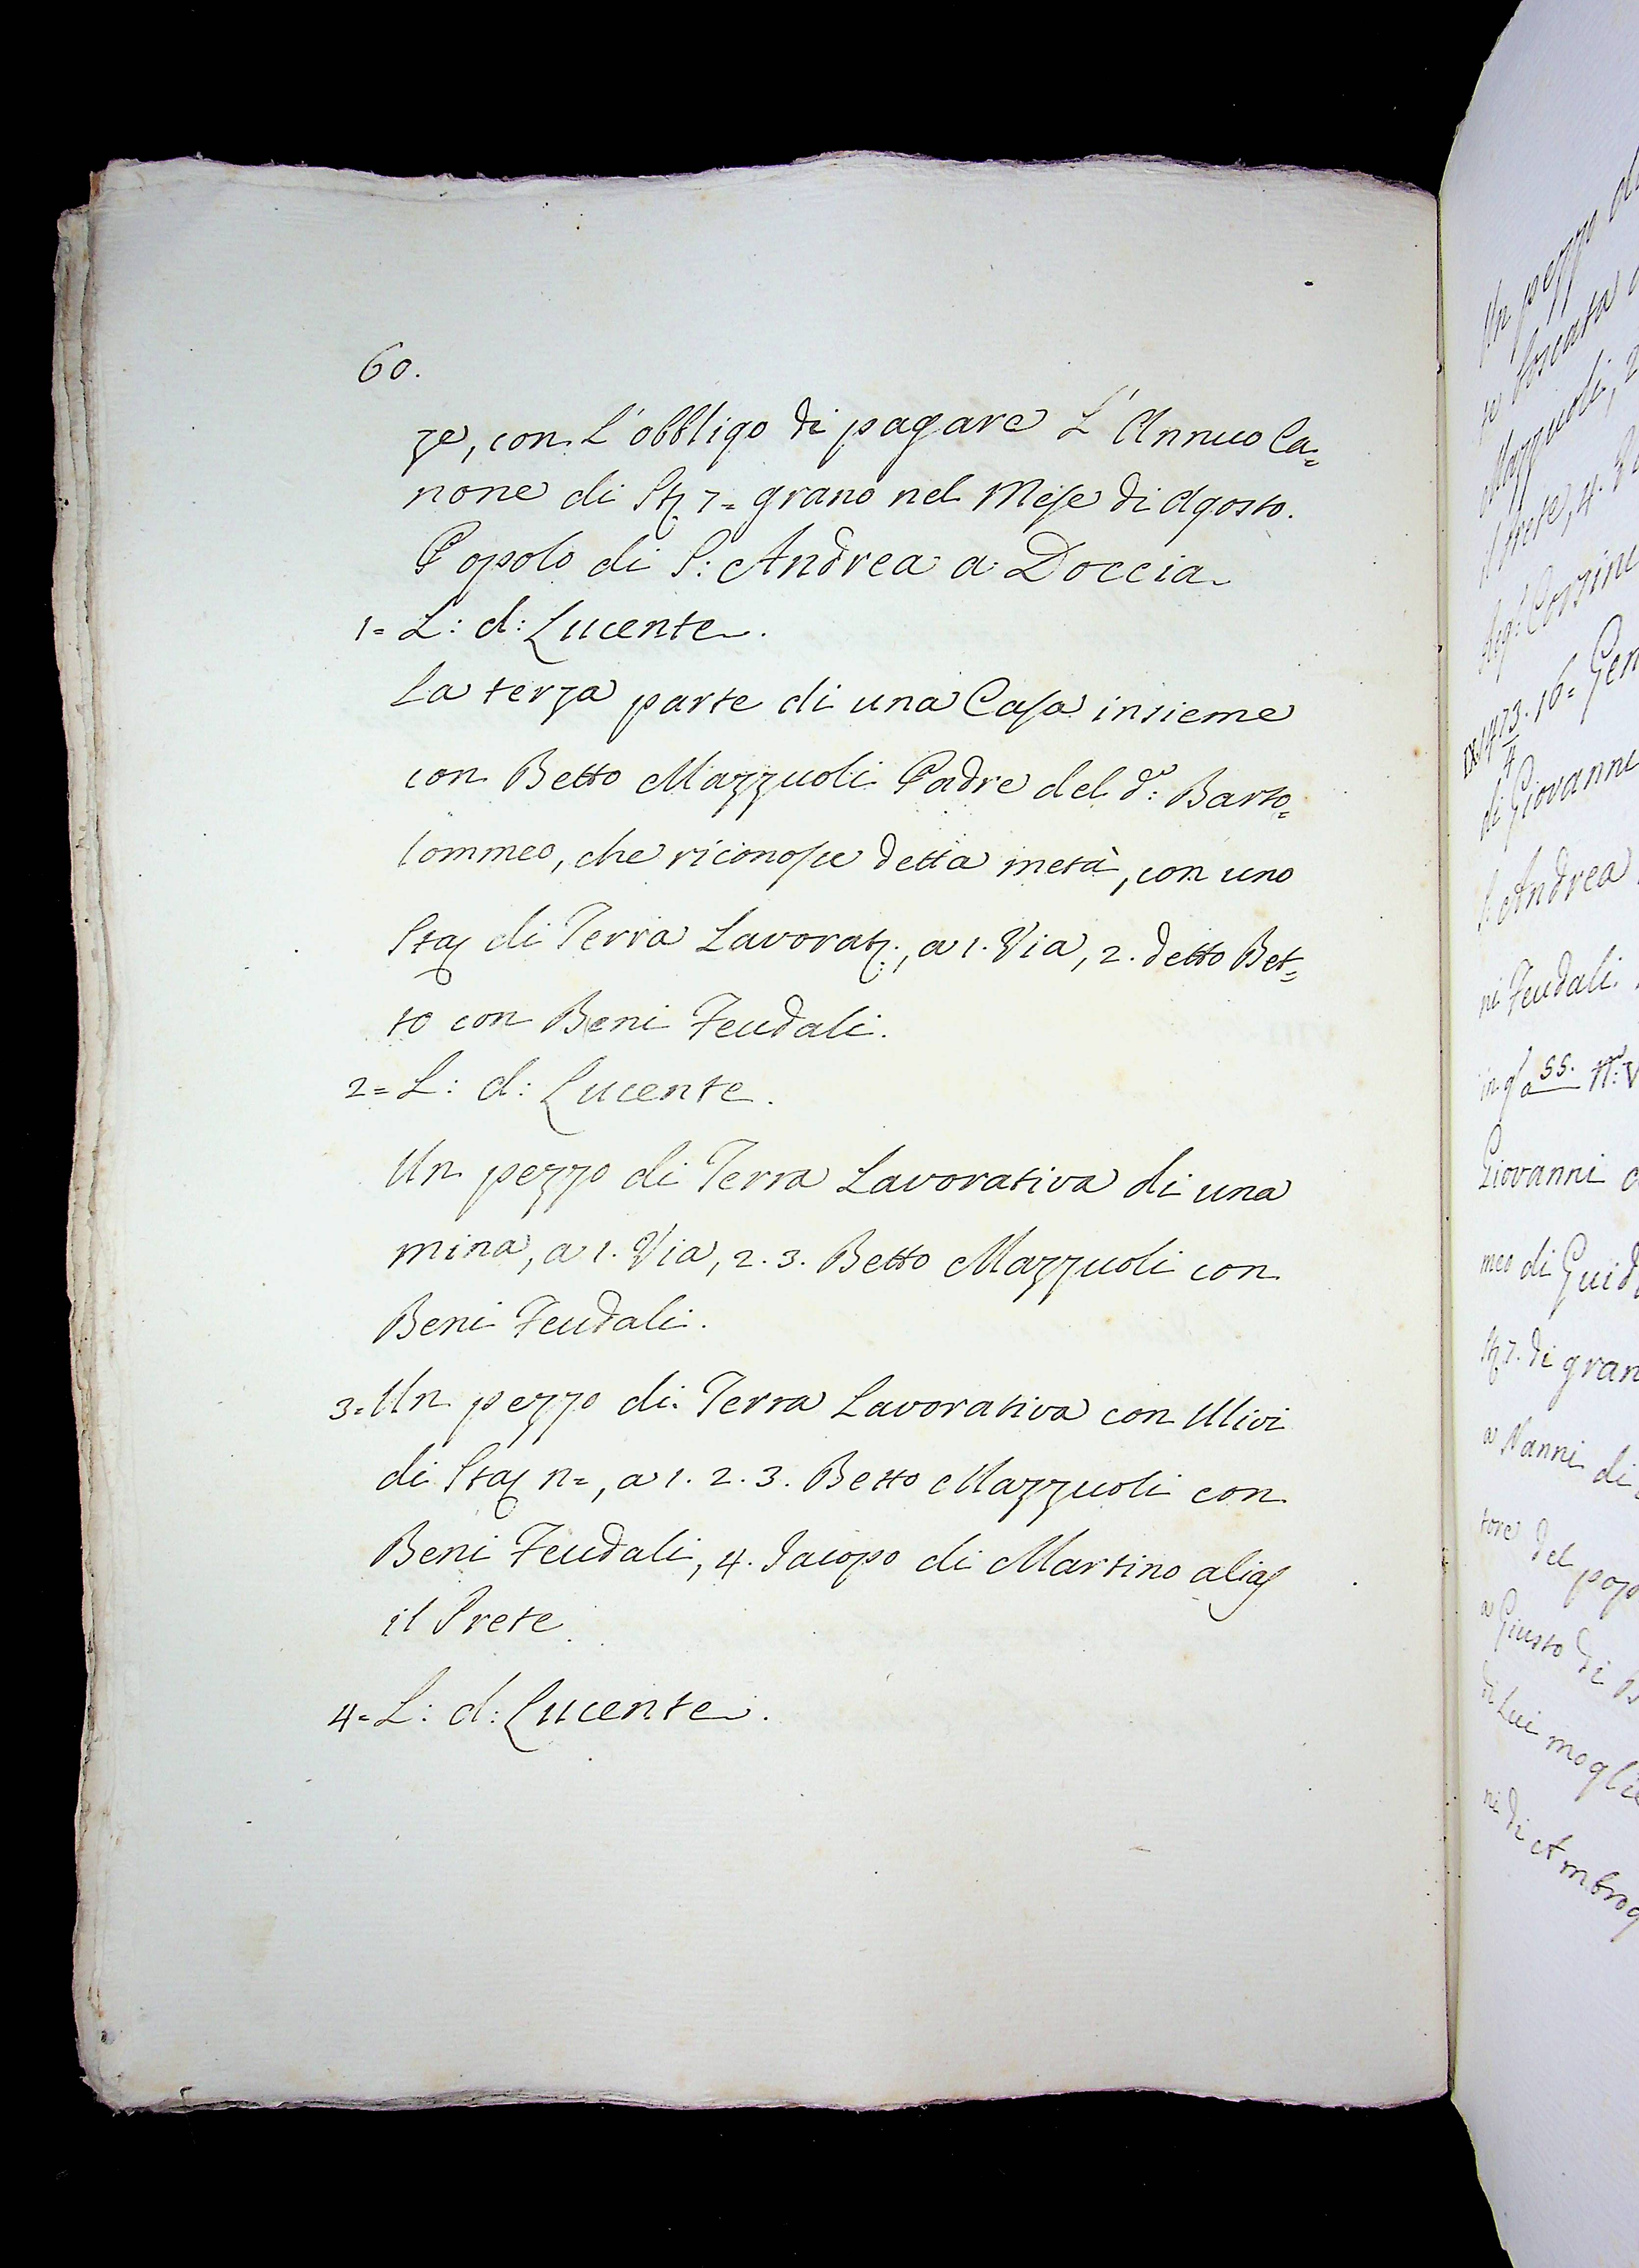 60.
ze, con L'obbligo di pagare L'Annuo Ca=
none di St. 7= grano nel Mese di Agosto.
Popolo di S: Andrea a Doccia
1= L: d: Lucente.
La terza parte di una Casa insieme
con Betto Mazzuoli Padre del d.o: Barto=
lommeo, che riconosce detta metà, con uno
Sta di Terra Lavorat:, a 1. Via, 2. detto Bet=
to con Beni Feudali.
2= L: d: Lucente.
Un pezzo di Terra Lavorativa di una
mina, a 1. Via, 2. 3. Betto Mazzuoli con
Beni Feudali.
3= Un pezzo di Terra Lavorativa con Ulivi
di Sta n=, a 1. 2. 3. Betto Mazzuoli con
Beni Feudali, 4. Jacopo di Martino alias
il Prete.
4= L: d: Lucente.
Un pezzo
boscata
Mazzuoli, 2
il Prete, 4. Vi
Corsini
1473. 16= Gen
4
di Giovanni
S: Andrea
ni Feudali.
55.
Giovanni
meo di Guid
St. 7. di gran
a Nanni di
tore del pop
a Giusto di B
di Lui moglie
ni di Ambrog